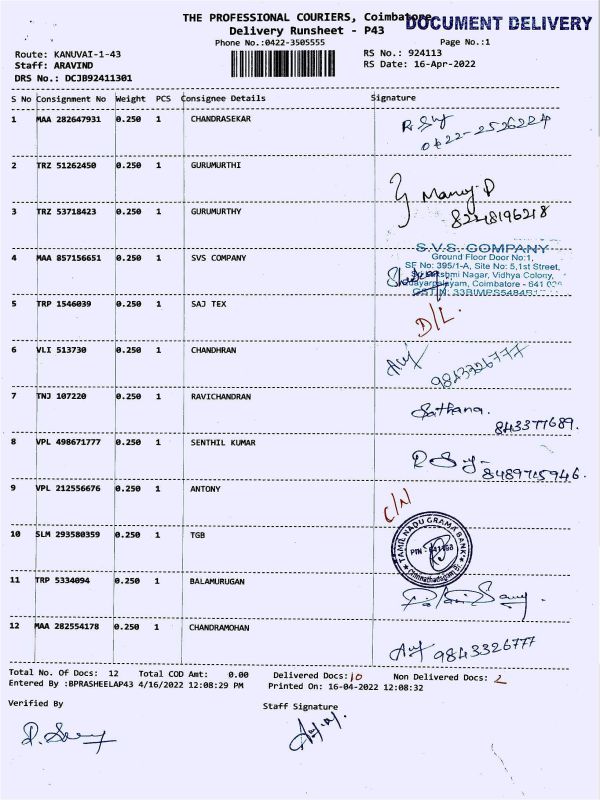 THE PROFESSIONAL COURIERS, Coimbatore
DOCUMENT DELIVERY
Delivery Runsheet - P43
Phone No.:0422-3505555 Page No.:1
Route: KANUVAI-1-43 RS No.: 924113
Staff: ARAVIND RS Date: 16-Apr-2022
DRS No.: DCJB92411301
S No Consignment No Weight PCS Consignee Details Signature
1 MAA 282647931 0.250 1 CHANDRASEKAR
0422-2526224
2 TRZ 51262450 0.250 1 GURUMURTHI
Manoj D
8248196218
3 TRZ 53718423 0.250 1 GURUMURTHY
4 MAA 857156651 0.250 1 SVS COMPANY
S.V.S. COMPANY
Ground Floor Door No:1,
SF No: 395/1-A, Site No: 5,1st Street,
Nagar, Vidhya Colony,
Coimbatore - 641
5 TRP 1546039 0.250 1 SAJ TEX
D/L.
6 VLI 513730 0.250 1 CHANDHRAN
9843326777
7 TNJ 107220 0.250 1 RAVICHANDRAN
Sathana.
843377689.
8 VPL 498671777 0.250 1 SENTHIL KUMAR
8489715946.
9 VPL 212556676 0.250 1 ANTONY
C/N
10 SLM 293580359 0.250 1 TGB
TAMIL NADU GRAMA BANK
PIN
11 TRP 5334094 0.250 1 BALAMURUGAN
12 MAA 282554178 0.250 1 CHANDRAMOHAN
9843326777
Total No. Of Docs: 12 Total COD Amt: 0.00 Delivered Docs: 10 Non Delivered Docs: 2
Entered By :BPRASHEELAP43 4/16/2022 12:08:29 PM Printed On: 16-04-2022 12:08:32
Verified By Staff Signature